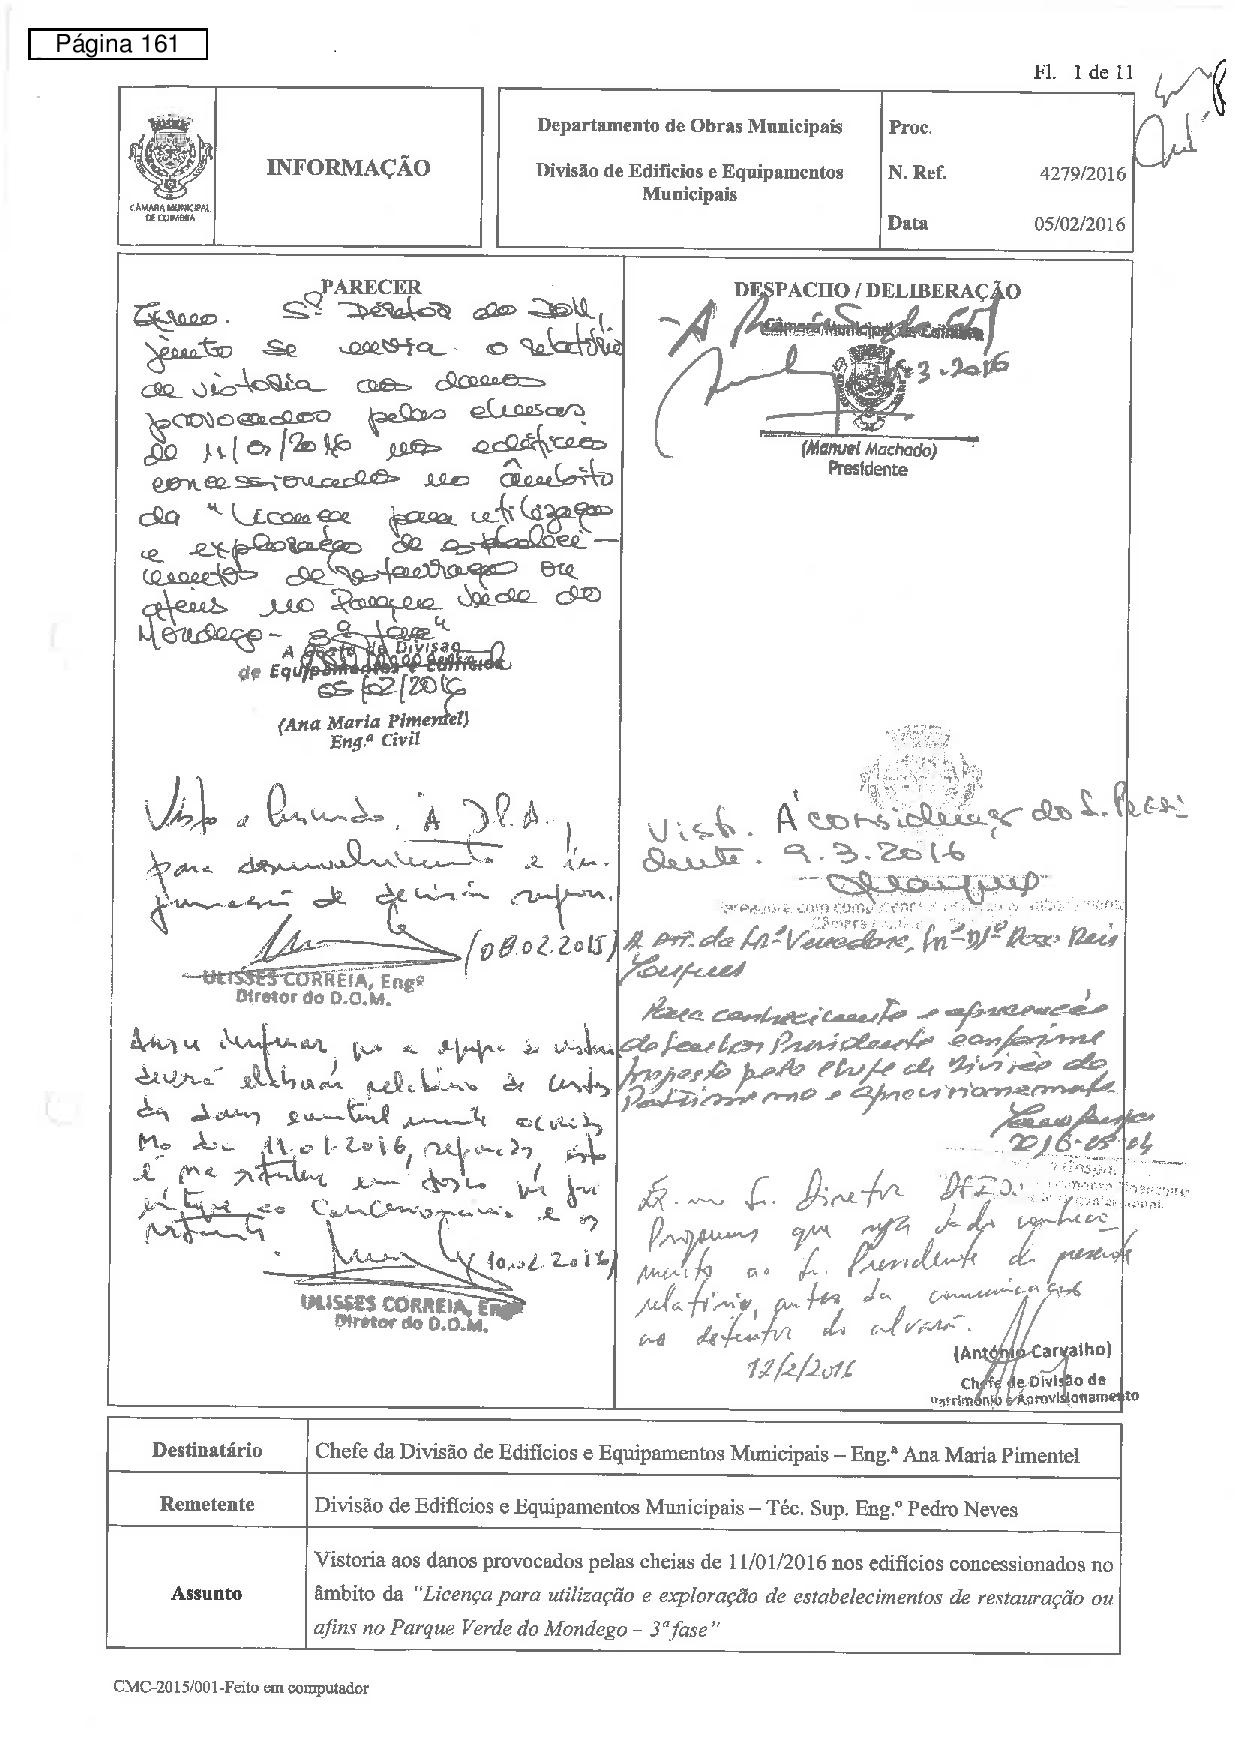 Página 161
Fl. 1 de 11
CÂMARA MUNICIPAL
DE COIMBRA
INFORMAÇÃO
Departamento de Obras Municipais
Divisão de Edifícios e Equipamentos
Municipais
Proc.
N. Ref. 4279/2016
Data 05/02/2016
PARECER
Sr. Diretor do DOM,
junto se envia o relatório
de vistoria aos danos
provocados pelas cheias
de 11/01/2016 nos edifícios
concessionados no âmbito
da "Licença para utilização
e exploração de estabeleci-
mentos de restauração ou
afins no Parque Verde do
Mondego - 3ª fase"
A Chefe da Divisão
de Equipamentos e Edifícios
05/02/2016
(Ana Maria Pimentel)
Eng.ª Civil
Visto e Concordo. À D.P.A.,
para desenvolvimento e in-
de decisão superior.
(08.02.2015)
ULISSES CORREIA, Engº
Diretor do D.O.M.
que a equipa de vistoria
deverá elaborar relatório de custos
dos danos
no dia 11.01.2016,
10.02.2016
ULISSES CORREIA, Engº
Diretor do D.O.M.
DESPACHO / DELIBERAÇÃO
- A
Câmara Municipal de Coimbra
3.2016
(Manuel Machado)
Presidente
Visto. À consideração do S. Presi
dente. 9.3.2016
À Srª Vereadora,
Para conhecimento e aprovação
do Senhor Presidente conforme
proposto pelo Chefe de Divisão do
Património e Aprovisionamento
2016-03-04
Sr. Diretor
Propomos que seja dado conheci
mento ao Sr. Presidente do presente
relatório, antes da comunicação
ao detentor do alvará.
12/2/2016
(António Carvalho)
Chefe de Divisão de
Património e Aprovisionamento
Destinatário Chefe da Divisão de Edifícios e Equipamentos Municipais – Eng.ª Ana Maria Pimentel
Remetente Divisão de Edifícios e Equipamentos Municipais – Téc. Sup. Eng.º Pedro Neves
Assunto Vistoria aos danos provocados pelas cheias de 11/01/2016 nos edifícios concessionados no
âmbito da "Licença para utilização e exploração de estabelecimentos de restauração ou
afins no Parque Verde do Mondego – 3ª fase"
CMC-2015/001-Feito em computador